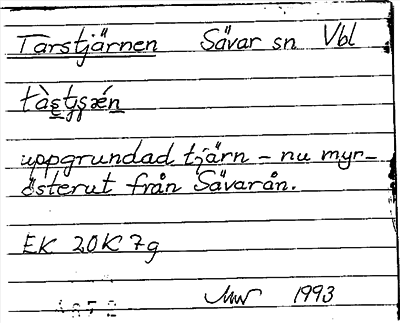 Tarstjärnen Sävar sn Vbl
uppgrundad tjärn – nu myr–
österut från Sävarån.
EK 20K 7g
1993